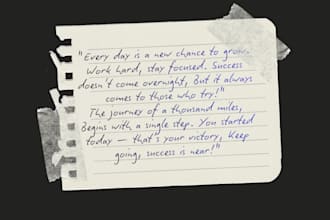 "Every day is a new chance to grow.
Work hard, stay focused. Success
doesn't come overnight, But it always
comes to those who try!"
The journey of a thousand miles,
Begins with a single step. You started
today — that's your victory, Keep
going, success is near!"